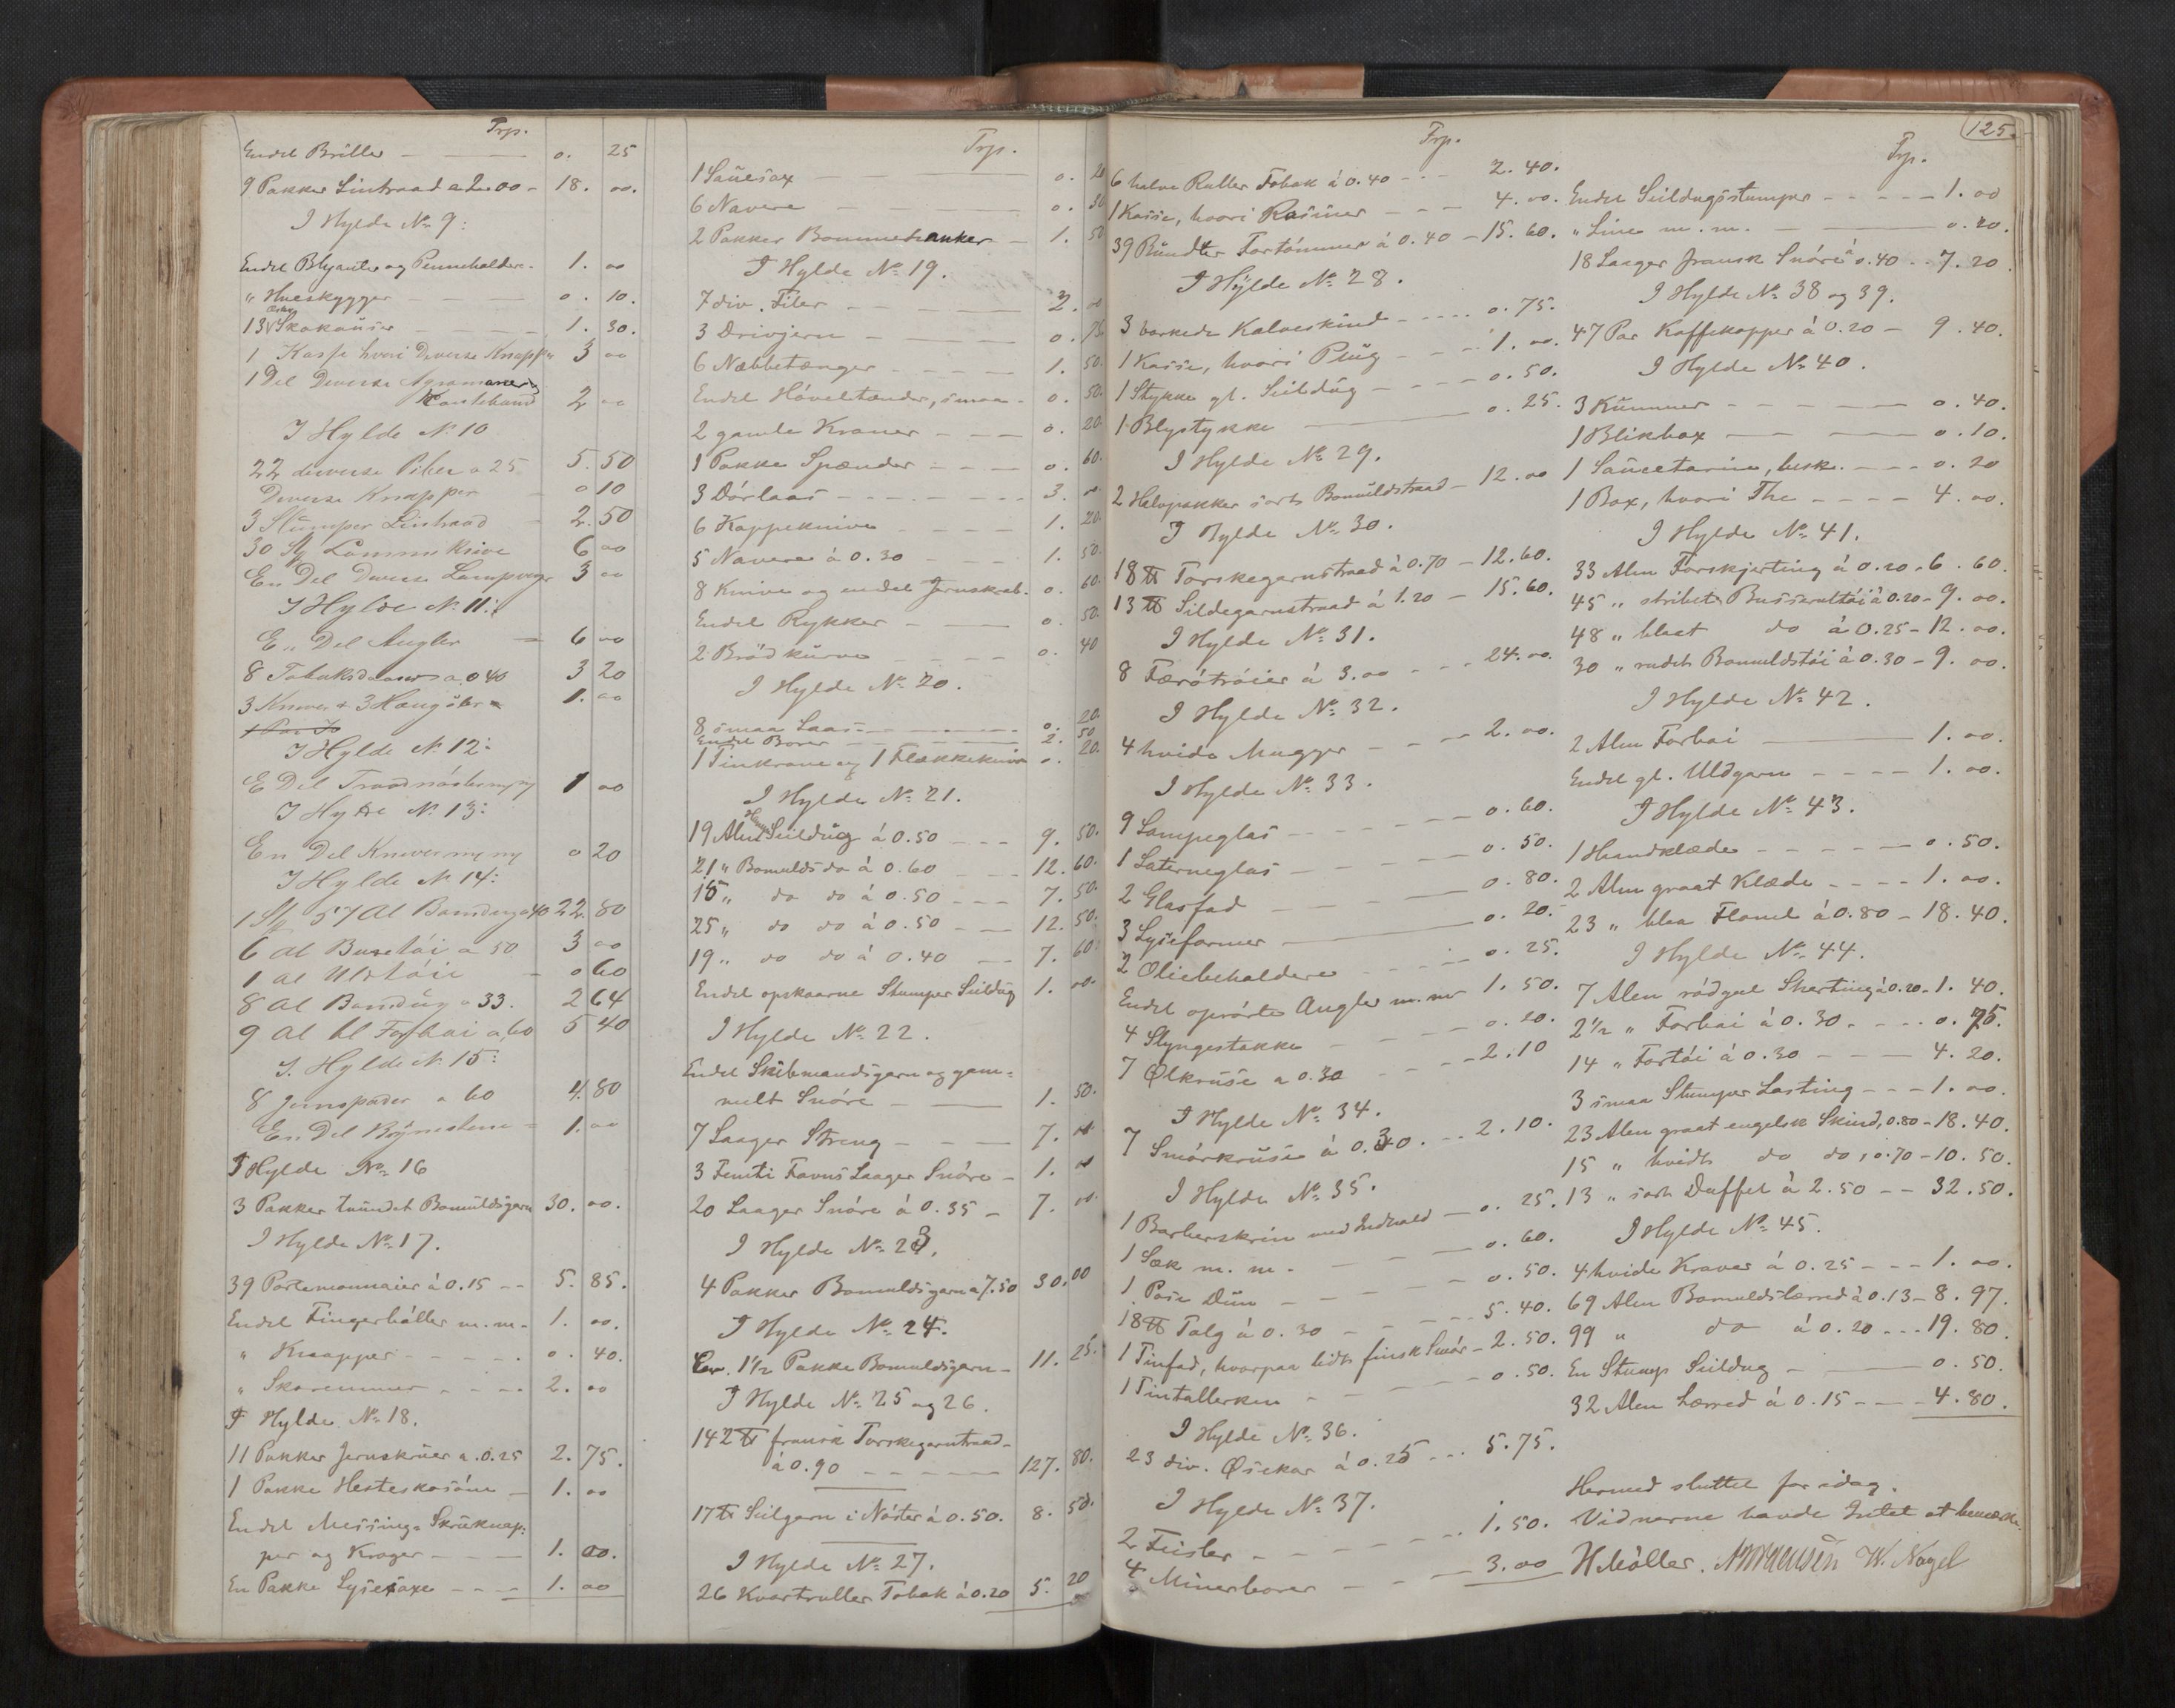 Trp.
Endel Briller — — o. 25
9 Pakker Lintraad a 2.00 - 18. oo.
I Hylde No 9:
Endel Blyanter og Penneholdere - 1. oo
" Hueskygger — — — o. 10.
13 Æsker Skokauser — — — 1. 30.
1 Kasse hvori Diverse Knapper 3 oo
1 Del Diverse Agramaner og
Kantebaand 2 oo
I Hylde No 10
22 diverse Piber a 25 5. 50
Diverse Knapper — o 10
3 Stumper Lintraad — 2. 50
30 St Lommeknive 6 oo
En Del Diverse Lampvæger 3 oo
I Hylde No 11:
En Del Angler — 6 oo
8 Tobaksdaaser a o 40 3 20
3 Kniver + 3 Hængsler 1. oo
I Hylde No 12:
E Del Traadnøster 1 oo
I Hylde No 13:
En Del Kniver o 20
I Hylde No 14:
1 St 57 Al Bomdug a 40 22. 80
6 al Busetøi a 50 3 oo
1 al Uldtøie — o 60
8 al Bomdug a 33. 2 64
9 al bl Forbai a 60 5 40
I. Hylde No 15:
8 Jernspader a 60 4. 80
En Del Brynestene = 1. oo
I Hylde No 16
3 Pakker tvundet Bomuldsgarn 30. oo.
I Hylde No 17.
39 Portemonnaier á 0.15 - - 5. 85.
Endel Fingerbøller m. m. - 1. oo.
" Knapper - - - - . o. 40.
" Skoremmer - - - - 2. oo
I Hylde No 18.
11 Pakker Jernskruer a. 0.25 2. 75.
1 Pakke Hesteskosøm — 1. oo
Endel Messing- Skruknap-
per og Kroger — — — 1. oo.
En Pakke Lysesaxe - - - 1. oo
Trp.
1 Sauesax — — — o. 20
6 Navere — — — o. 36
2 Pakker Bommehanker — 1. 50
I Hylde No 19.
7 div. Filer — — — 2. oo
3 Drivjern — — — o. 75
6 Næbbetænger — — — 1. 50.
Endel Høveltænder, smaa - o. 50.
2 gamle Kraner — — — o. 20.
1 Pakke Spænder - - - — o. 60.
3 Dørlaas - - - - - - - 3. oo.
6 Kappeknive — — — 1. 20.
5 Navere á 0.30 — — 1. 50.
8 Knive og endel Jernskrab. o. 60.
Endel Rykker — — o. 50.
2 Brødkurve — — — o. 40
I Hylde No 20.
8 smaa Laase — — — o. 20.
Endel Borer — — — 2. 50
1 Tinkrane og 1 Flækkekniv o. 20.
I Hylde No 21.
19 Alen Hampe Seildug á 0.50 - - - 9. 50.
21 " Bomulds do á 0.60 — 12. 60.
15 " do do á 0.50 - - - 7. 50.
25 " do do á 0.50 - — 12. 50.
19 " do do á 0.40 — 7. 60.
Endel opskaarne Stumper Seildug 1. oo.
I Hylde No 22.
Endel Skibmandsgarn og gam-
melt Snøre — — — 1. 50.
7 Laager Streng - - — 7. oo
3 Femti Favns Laager Snøre - 1. oo
20 Laager Snøre á 0.35 - 7. oo.
I Hylde No 23.
4 Pakker Bomuldsgarn a 7.50 30. 00
I Hylde No 24.
Ca. 1½ Pakke Bomuldsgarn - 11. 25.
I Hylde No 25 og 26.
142 ℔ fransk Torskegarntraad -
á 0.90 — — — — 127. 80.
17 ℔ Seilgarn i Nøster á 0.50. 8. 50.
I Hylde No 27.
26 Kvartruller Tobak á 0.20 5. 20
Trp.
6 halve Ruller Tobak á 0.40 - - - 2. 40.
1 Kasse, hvori Rosiner — — — 4. oo.
39 Bundter Fortømmer á 0.40 - 15. 60.
I Hylde No 28.
3 barkede Kalveskind - - - - - o. 75.
1 Kasse, hvori Plug - - - - 1. oo.
1 Stykke gl. Seildug - - - - o. 50.
1 Blystykke — o. 25.
I Hylde No 29.
2 Halvpakker sort Bomuldstraad - 12. oo
I Hylde No 30.
18 ℔ Torskegarnstraad á 0.70 - 12. 60.
13 ℔ Sildegarnstraad á 1.20 - 15. 60.
I Hylde No 31.
8 Færøtrøier á 3.oo - - - 24. oo.
I Hylde No 32.
4 hvide Mugger - - - 2. oo.
I Hylde No 33.
9 Lampeglas - - - - - o. 60.
1 Laterneglas - - - - - o. 50.
2 Glasfad — — — o. 80.
3 Lyseformer — o. 20.
2 Oliebeholdere - - - o. 25.
Endel oprørte Angler m. m 1. 50.
4 Slyngestakke - - - o. 20.
7 Ølkruse a 0.30 - - - 2. 10
I Hylde No 34.
7 Smørkruse á 0.30. - - 2. 10.
I Hylde No 35.
1 Barberskrin med Indhold — o. 25.
1 Sæk m. m. - — — — o. 60.
1 Pose Dun - - - - o. 50.
18 ℔ Talg á 0.30 - - - - 5. 40.
1 Tinfad, hvorpaa lidt finsk Smør - 2. 50.
1 Tintallerken - - - - o. 50.
I Hylde No 36.
23 div. Øsekar á 0.25 - - - 5. 75.
I Hylde No 37.
2 Feisler - - - - - - - 1. 50.
4 Minerborer - - - 3. oo
125.
Trp.
Endel Seildugsstumper - - - - - 1. oo
" Line m. m. — — o. 20.
18 Laager fransk Snøre á 0.40 - - 7. 20.
I Hylde No 38 og 39.
47 Par Kaffekopper á 0.20 - 9. 40.
I Hylde No 40.
3 Kummer - - - - — o. 40.
1 Blikbox — — o. 10.
1 Saucetærine, besk. - - - o. 20
1 Box, hvori The - - - - 4. oo.
I Hylde No 41.
33 Alen Forskjerting á 0.20 - 6. 60.
45 " stribet Busseraltøi á 0.20 - 9. oo.
48 " blaat do á 0.25 - 12. oo.
30 " rudet Bomuldstøi á 0.30 - 9. oo.
I Hylde No 42.
2 Alen Forbai — 1. oo.
Endel gl. Uldgarn - - - - 1. oo.
I Hylde No 43.
1 Haandklæde - - - - — o. 50.
2 Alen graat Klæde - - - - 1. oo.
23 " blaa Flonel á 0.80 - 18. 40.
I Hylde No 44.
7 Alen rødgul Skerting á 0.20 - 1. 40.
2½ " Forbai á 0.30. - - - o. 75.
14 " Fortøi á 0.30 - - — 4. 20.
3 smaa Stumper Lasting - - - 1. oo.
23 Alen graat engelsk Skind, 0.80 - 18. 40.
15 " hvidt do do, 0.70 - 10. 50.
13 " sort Duffel á 2.50 - - 32. 50.
I Hylde No 45.
4 hvide Kraver á 0.25 - - - 1. oo.
69 Alen Bomuldslærred á 0.13 - 8. 97.
99 " do á 0.20 - - - 19. 80.
En Stump Seildug - — o. 50.
32 Alen Lærred á 0.15 - - - - 4. 80.
Hermed sluttet for idag.
Vidnerne havde Intet at bemærke.
H Møller. W. Nagel